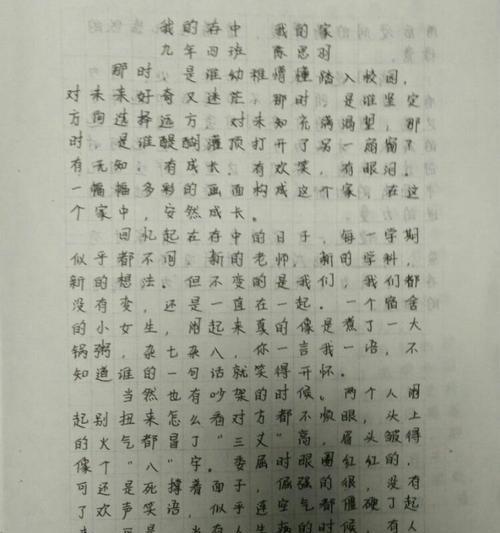 我的存中 我的家
九年四班 陈思羽
那时，是谁幼稚懵懂踏入校园，
对未来好奇又迷茫，那时，是谁坚定
方向选择远方，对未知充满渴望，那
时，是谁醍醐灌顶打开了另一扇窗了
有无知，有成长，有欢笑，有眼泪。
一幅幅多彩的画面构成这个家，在这
个家中，安然成长。
回忆起在存中的日子，每一学期
似乎都不同，新的老师，新的学科，
新的想法。但不变的是我们，我们都
没有变，还是一直在一起。一个宿舍
的小女生，闹起来真的像是煮了一大
锅粥，杂七杂八，你一言我一语，不
知道谁的一句话就笑得开怀。
当然也有吵架的时候。两个人闹
起别扭来怎么看对方都不顺眼，头上
的火气都冒了“三丈”高，眉头皱得
像个“八”字。委屈时眼圈红红的，
可还是死撑着面子，倔强的很，没有
了欢声笑语，似乎连空气都僵硬了起
来，可是，当有人生病的时候，有人